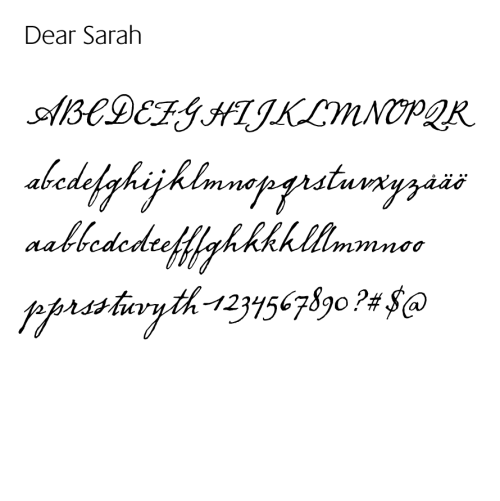 Dear Sarah
ABCDEFGHIJKLMNOPQR
abcdefghijklmnopqrstuvxyzåäö
aabbcdcdeefffghkkklllmmnoo
pprsstuvyth-1234567890?#$@